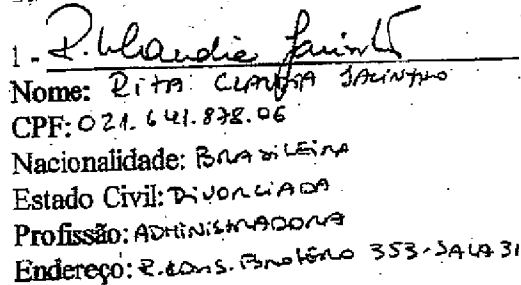 1 - R. Claudia Jacintho
Nome: RITA CLAUDIA JACINTHO
CPF: 021.641.878.06
Nacionalidade: BRASILEIRA
Estado Civil: DIVORCIADA
Profissão: ADMINISTRADORA
Endereço: R. CONS. BROTÉRO 353-SALA 31